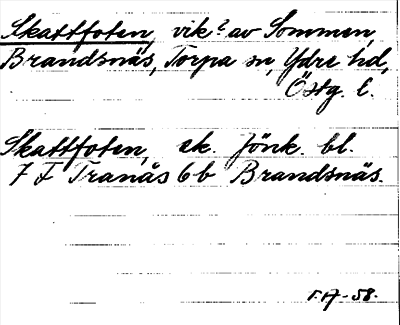 Skattfoten, vik? av Sommen,
Brandsnäs, Torpa sn, Ydre hd,
Östg. l.
Skattfoten, ek. Jönk. bl.
7 F Tranås 6b Brandsnäs.
-58.